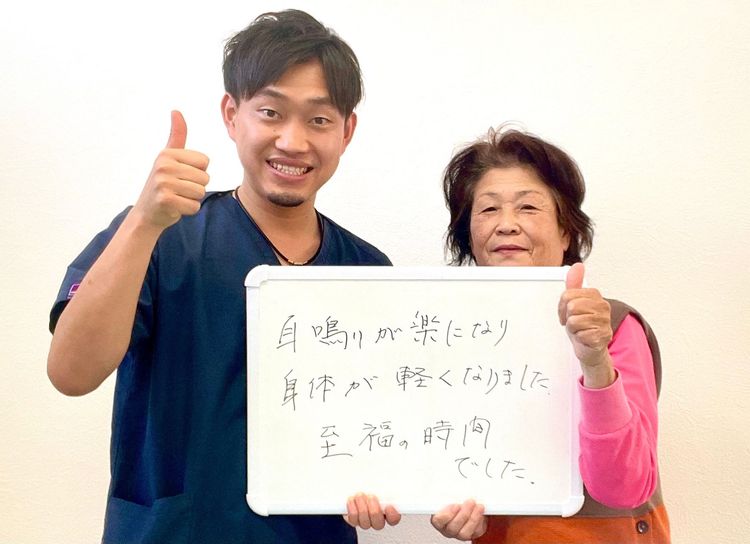 耳鳴りが楽になり
身体が軽くなりました。
至福の時間
でした。